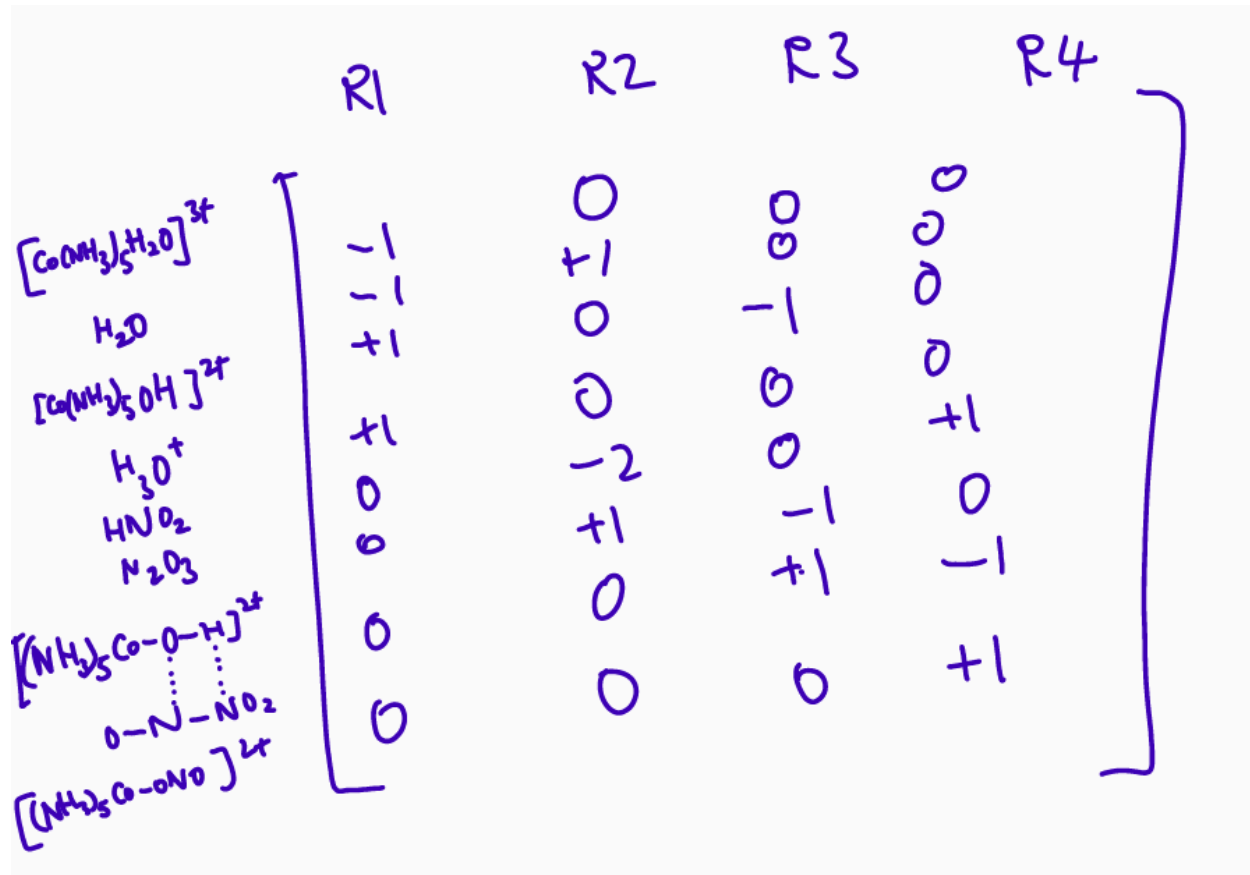 R1 R2 R3 R4
[Co(NH₃)₅H₂O]³⁺ -1 0 0 0
H₂O -1 +1 0 0
[Co(NH₃)₅OH]²⁺ +1 0 -1 0
H₃O⁺ +1 0 0 0
HNO₂ 0 -2 0 +1
N₂O₃ 0 +1 -1 0
[(NH₃)₅Co-O-H]²⁺ 0 0 +1 -1
O-N-NO₂
[(NH₃)₅Co-ONO]²⁺ 0 0 0 +1